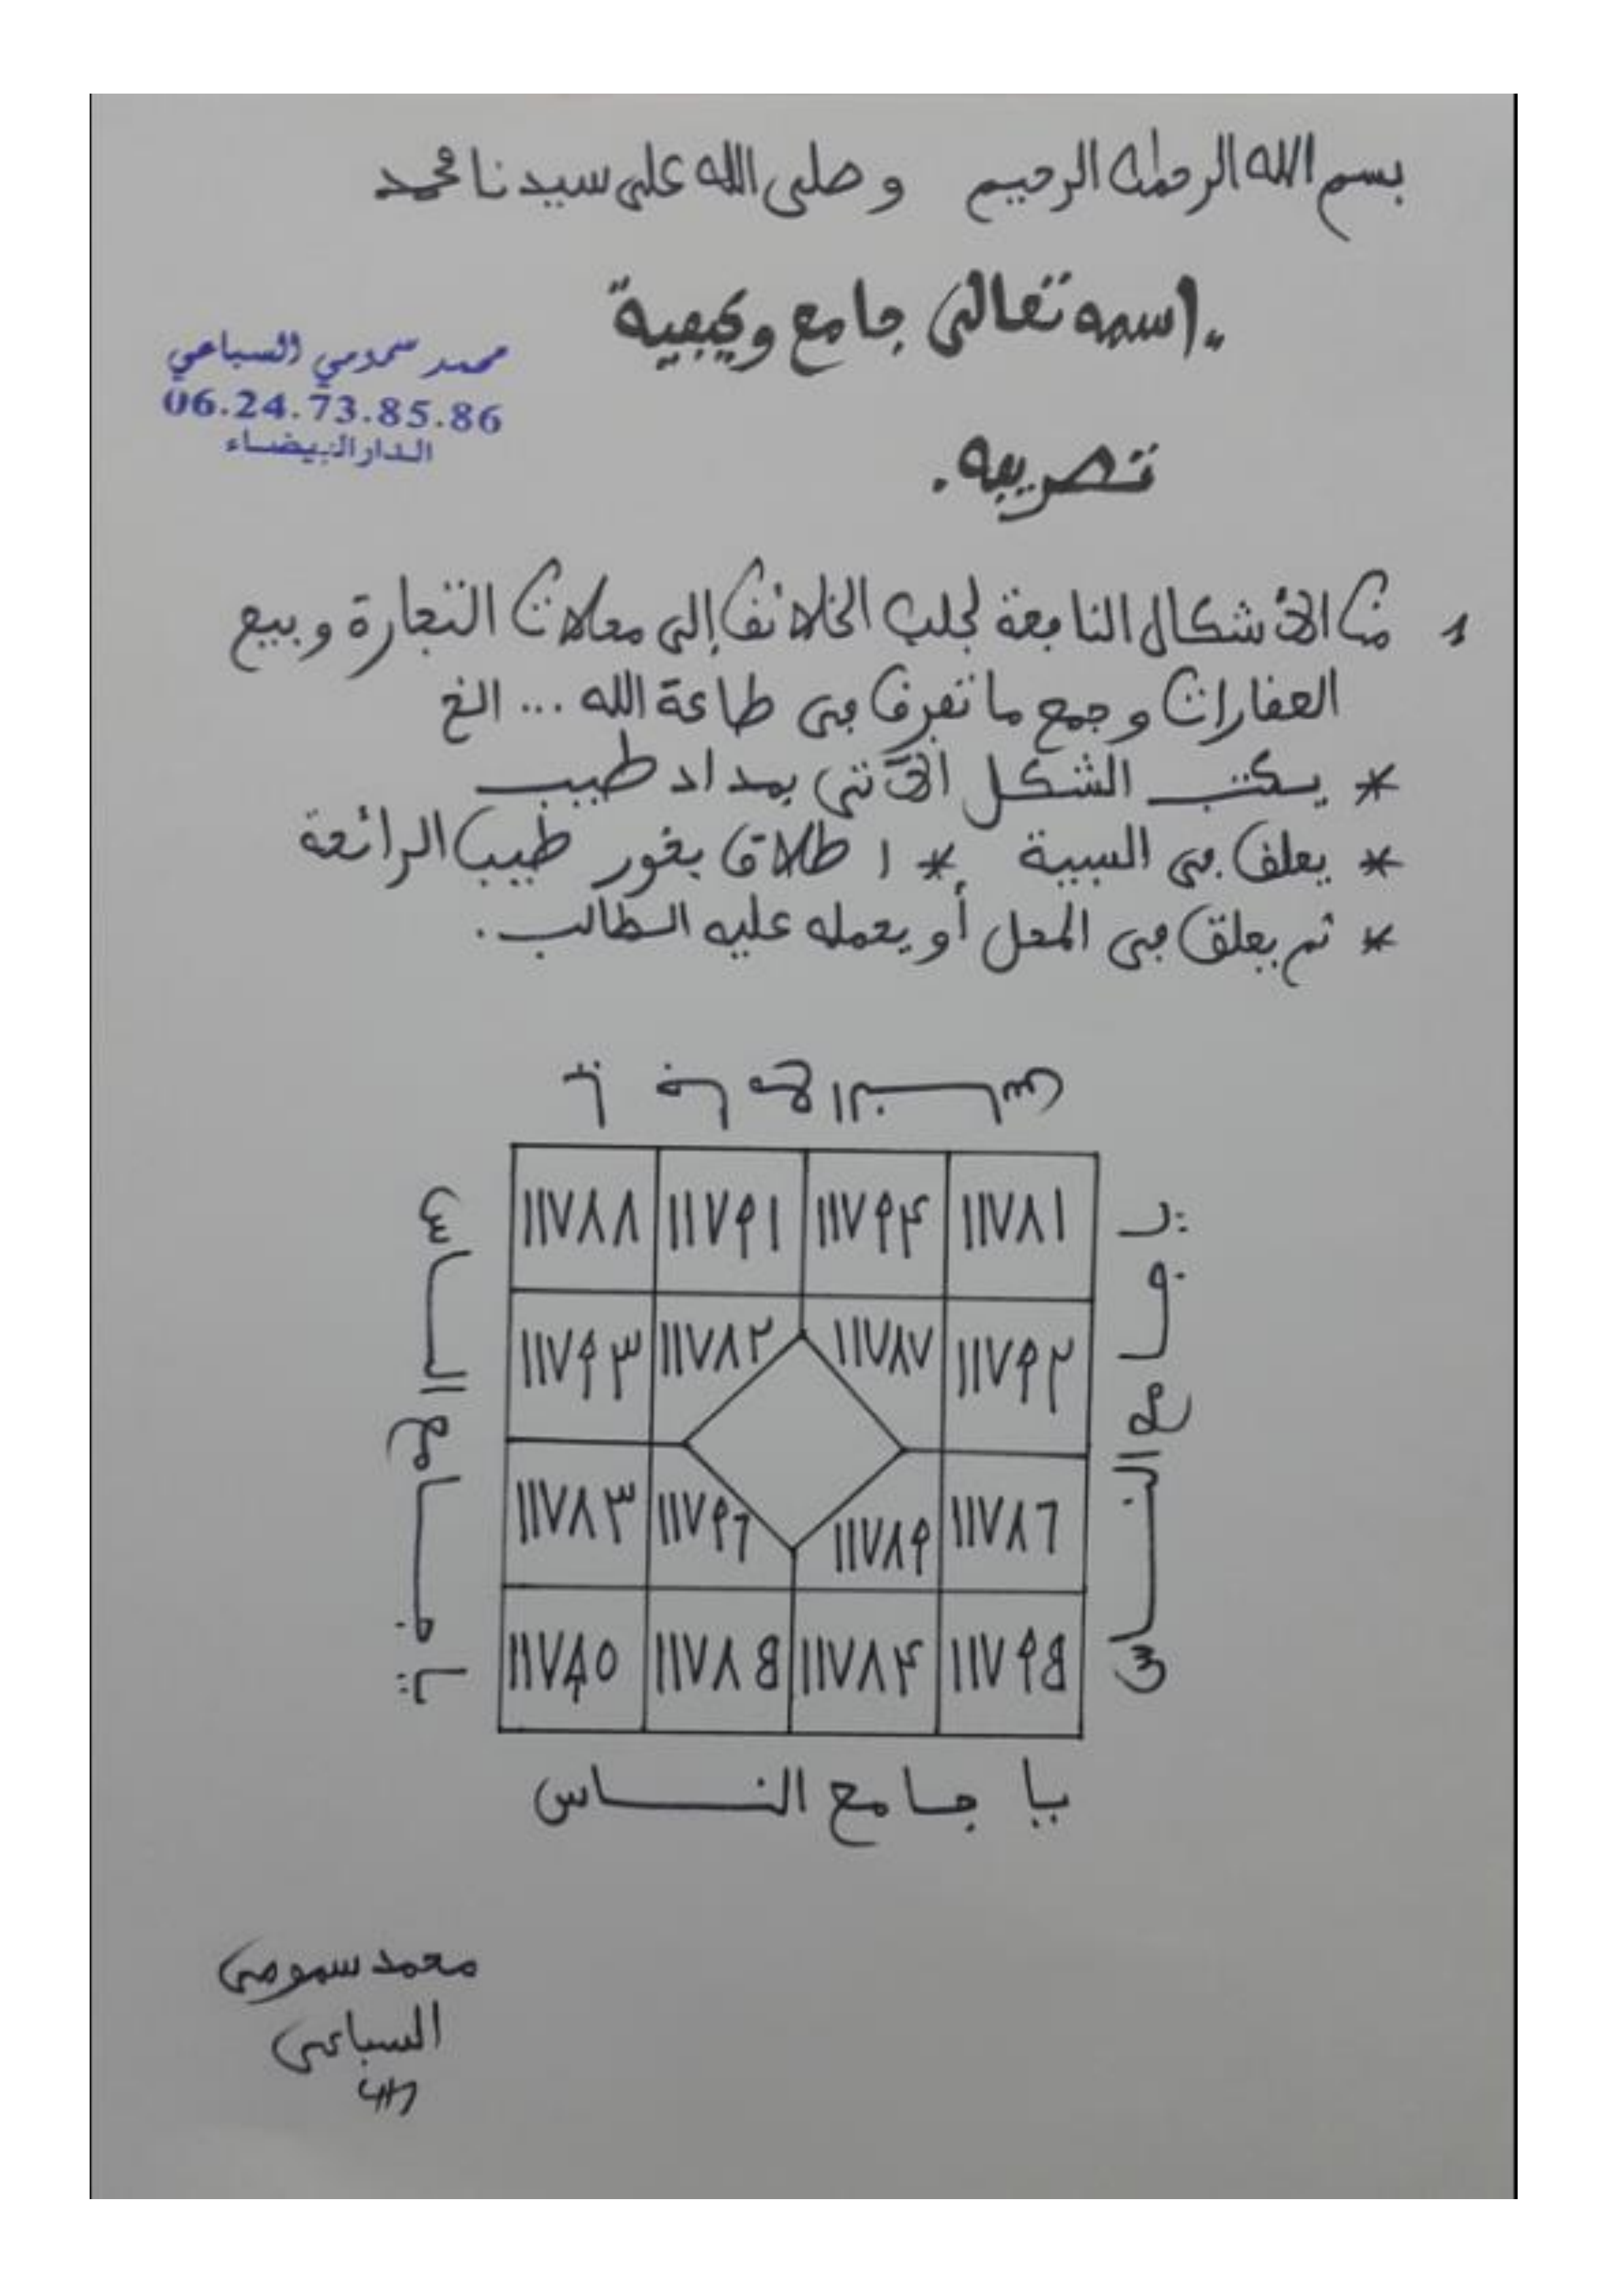 بسم الله الرحمان الرحيم وصلى الله على سيدنا محمد
اسمه تعالى جامع وكيفية
محمد سمومي السباعي
06.24.73.85.86
الدار البيضاء
تصريفه.
1 من الأشكال النافعة لجلب الخلائق إلى محلات التجارة وبيع
العقارات وجمع ما تفرق في طاعة الله ... الخ
* يكتب الشكل الآتي بمداد طيب
* يعلق في السيبة * اطلاق بخور طيب الرائحة
* ثم يعلق في المحل أو يحمله عليه الطالب.
يا جامع الناس
١١٧٨٨ ١١٧٩١ ١١٧٩۴ ١١٧٨١
١١٧٩٣ ١١٧٨٢ ١١٧٨٧ ١١٧٩٢
١١٧٨٣ ١١٧٩٦ ١١٧٨٩ ١١٧٨٦
١١٧٨٥ ١١٧٨۴
يا جامع الناس
يا جامع الناس
يا جامع الناس
محمد سمومي
السباعي